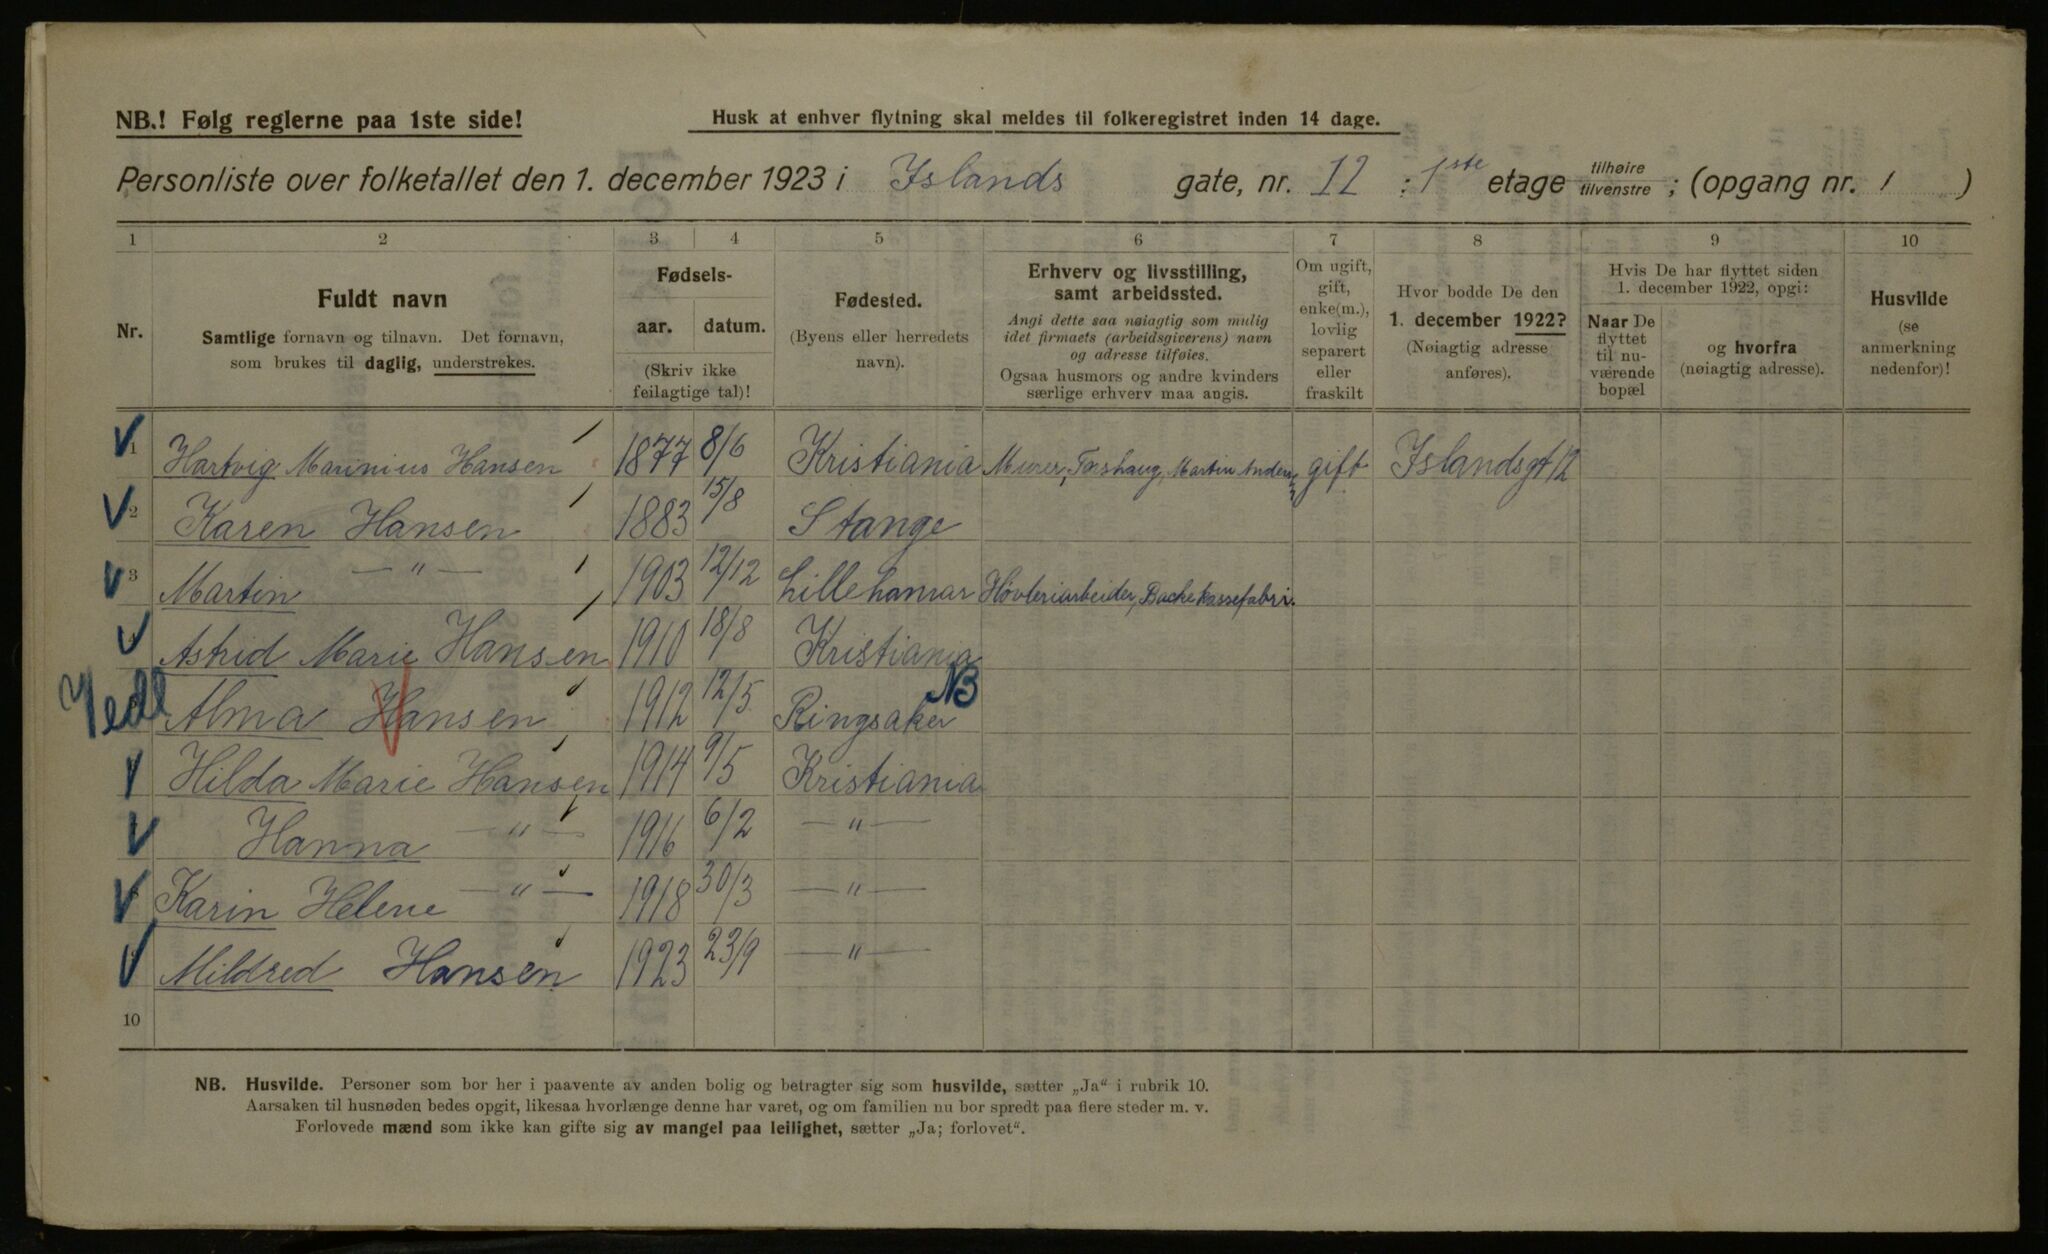 NB.! Følg reglerne paa 1ste side!
Husk at enhver flytning skal meldes til folkeregistret inden 14 dage.
Personliste over folketallet den 1. december 1923 i Islands gate, nr. 12 : 1ste etage tilhøire tilvenstre ; (opgang nr. 1 )
1 2 3 4 5 6 7 8 9 10
Nr.
Fuldt navn
Samtlige fornavn og tilnavn. Det fornavn,
som brukes til daglig, understrekes.
Fødsels-
aar. datum.
(Skriv ikke
feilagtige tal)!
Fødested.
(Byens eller herredets
navn).
Erhverv og livsstilling,
samt arbeidssted.
Angi dette saa nøiagtig som mulig
idet firmaets (arbeidsgiverens) navn
og adresse tilføies.
Ogsaa husmors og andre kvinders
særlige erhverv maa angis.
Om ugift,
gift,
enke(m.),
lovlig
separert
eller
fraskilt
Hvor bodde De den
1. december 1922?
(Nøiagtig adresse
anføres).
Hvis De har flyttet siden
1. december 1922, opgi:
Naar De
flyttet
til nu-
værende
bopæl
og hvorfra
(nøiagtig adresse).
Husvilde
(se
anmerkning
nedenfor)!
1 Hartvig Marinius Hansen 1877 8/6 Kristiania Murer, Torshaug, Martin gift Islandsgt 12
2 Karen Hansen 1883 15/8 Stange
3 Martin —"— 1903 12/12 Lillehamar Høvleriarbeider, Backe kassefabri.
Astrid Marie Hansen 1910 18/8 Kristiania
Alma Hansen 1912 12/5 Ringsaker NB
Hilda Marie Hansen 1914 9/5 Kristiania
Hanna —"— 1916 6/2 —"—
Karin Helene —"— 1918 30/3 —"—
Mildred Hansen 1923 23/9 —"—
10
NB. Husvilde. Personer som bor her i paavente av anden bolig og betragter sig som husvilde, sætter „Ja“ i rubrik 10.
Aarsaken til husnøden bedes opgit, likesaa hvorlænge denne har varet, og om familien nu bor spredt paa flere steder m. v.
Forlovede mænd som ikke kan gifte sig av mangel paa leilighet, sætter „Ja; forlovet“.